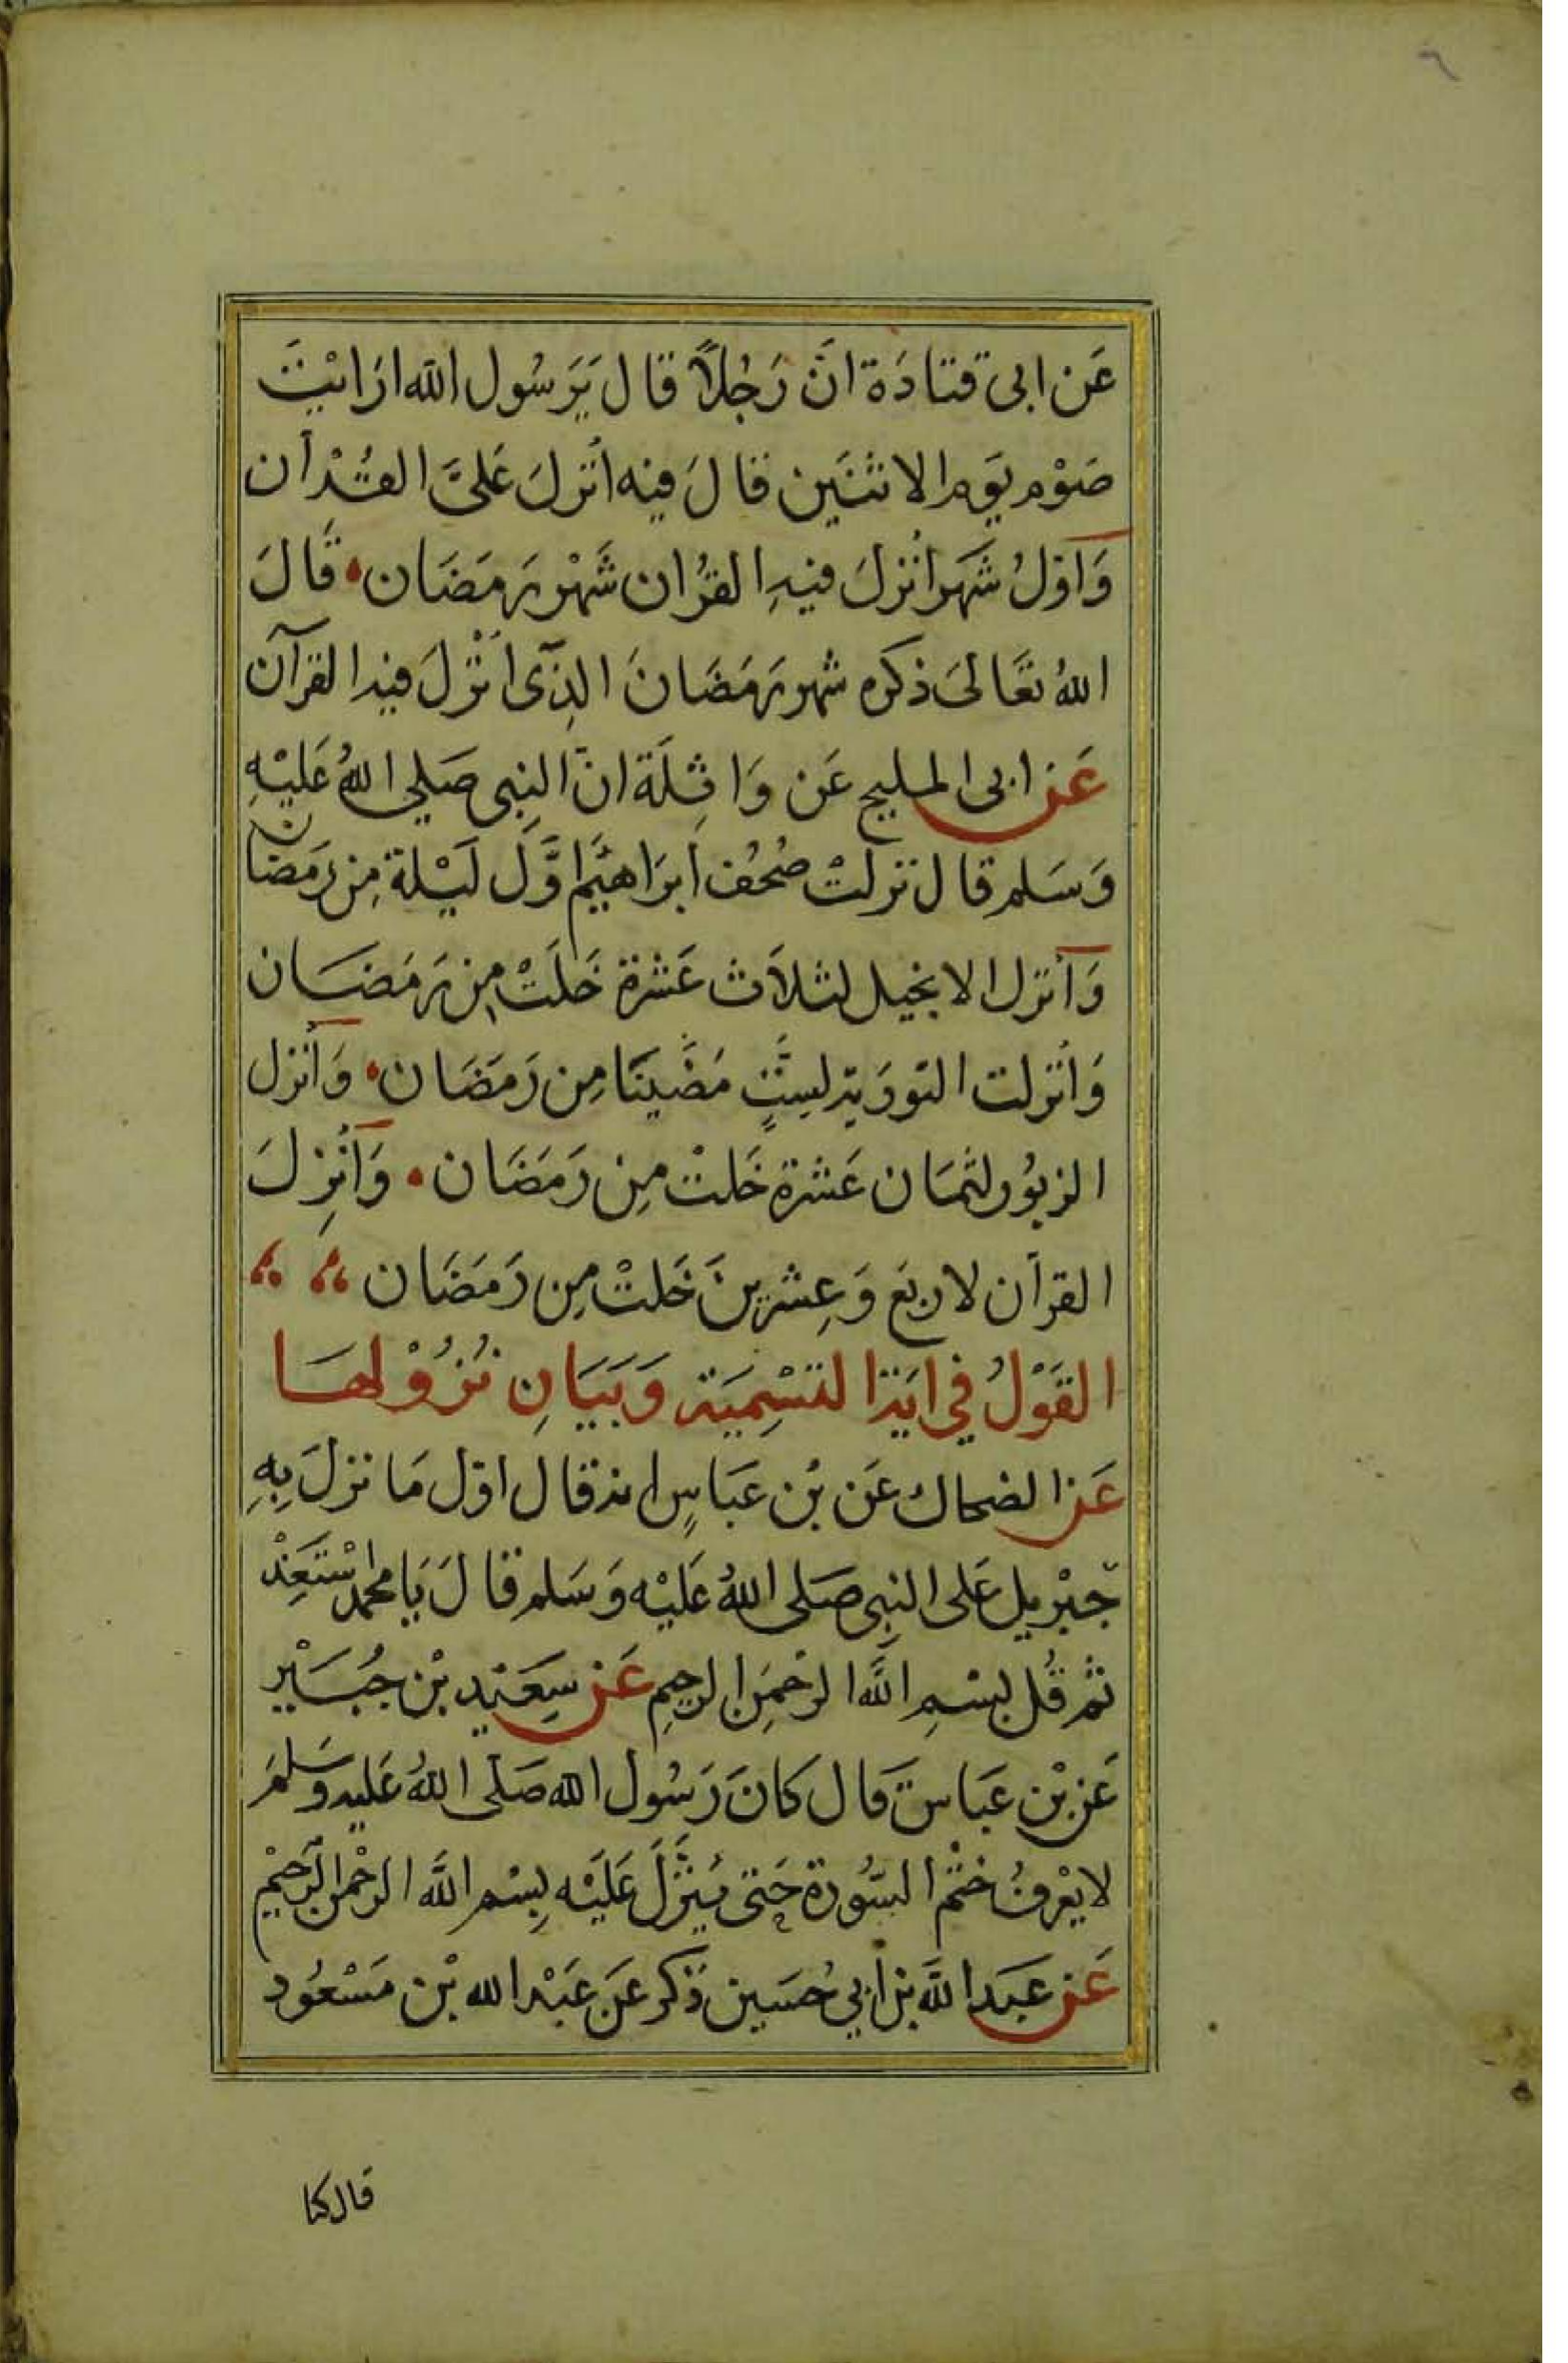 ٦
عَن ابى قتادَة انَّ رَجُلاً قال يَرَسُول الله ارَايْتَ
صَوْم يَوم الاثنَين قالَ فيه اُنزلَ عَلىَّ القُرْآن
وَاوّلُ شَهَر اُنزلَ فيهِ القُران شَهْر رَمَضَان قالَ
اللهُ تعَالىَ ذكره شهر رَمَضَانَ الذِّى اُنْزلَ فيه القرآن
عَن ابى المليح عَن وَاثِلَة انّ النبِى صَلى اللهُ عَليْهِ
وَسَلم قال نزلتْ صُحُف اِبرَاهيَم اوَّل لَيْلة مِن رَمَضان
وَاُنزل الانجيل لثلاَث عَشرة خَلَتْ مِن رَمَضَان
وَاُنزلت التوريَة لسِتٍّ مَضَينَا مِن رَمَضَان وَاُنزل
الزبُور لثمَان عَشرة خَلتْ مِن رَمَضَان وَاُنزِلَ
القرآن لاربَع وَعِشرينَ خَلتْ مِن رَمَضَان
القَوْلُ فِي ايَة التسْمِيَة وَبَيَانِ نُزُوْلهَا
عَن الضحاك عَن بْن عَبَاسٍ انه قال اوّل مَا نزلَ بِهِ
جبْريل عَلى النبِى صَلى اللهُ عَليْه وَسَلم قالَ يَا محمد اسْتَعِذْ
ثم قُل بسْمِ اللَّه الرحْمَنِ الرحِيمِ عَن سَعَيْد بْن جُبَيْر
عَن بْن عَبَاس قال كانَ رَسُول الله صَلّى اللهُ عَليه وَسَلمَ
لا يعْرفُ ختْم السُّورة حَتى يُنَزَّلَ عَلَيْه بِسْم اللَّه الرحْمن الرحيْم
عَن عَبَد اللَّه بْن اَبِي حُسَين ذكر عَن عَبْد الله بْن مَسْعُود
قال كنا